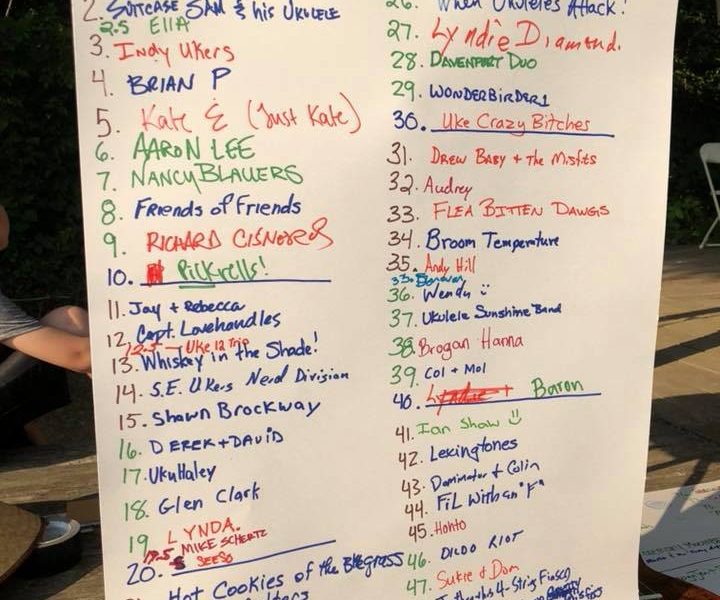 2. SUITCASE SAM & his UKULELE
2.5 Ella
3. Indy Ukers
4. BRIAN P
5. Kate & (Just Kate)
6. AARON LEE
7. NANCY BLAUERS
8. Friends of Friends
9. RICHARD CISNEROS
10. Pickrells!
11. Jay + Rebecca
12. Capt. Lovehandles
12.5 - Uke 12 Trip
13. Whiskey in the Shade!
14. S.E. Ukers Nerd Division
15. Shawn Brockway
16. DEREK + DAVID
17. UkuHaley
18. Glen Clark
19 LYNDA.
19.5 MIKE SCHERTZ
SEESO
20.
Hot Cookies of the Bluegrass
26. When Ukuleles Attack!
27. Lyndie Diamond.
28. DAVENPORT DUO
29. WONDERBIRDER1
30. Uke Crazy Bitches
31. DREW BABY + The Misfits
32. Audrey
33. FLEA BITTEN DAWGS
34. Broom Temperature
35. Andy Hill
36. Wendy
37. Ukulele Sunshine Band
38. Brogan Hanna
39. Col + Mol
40. Baron
41. Ian Shaw
42. Lexingtones
43. Dominator & Colin
44. FiL with an "F"
45. Honto
46. DILDO RIOT
47. Sukie & Dom
4-String Fiasco